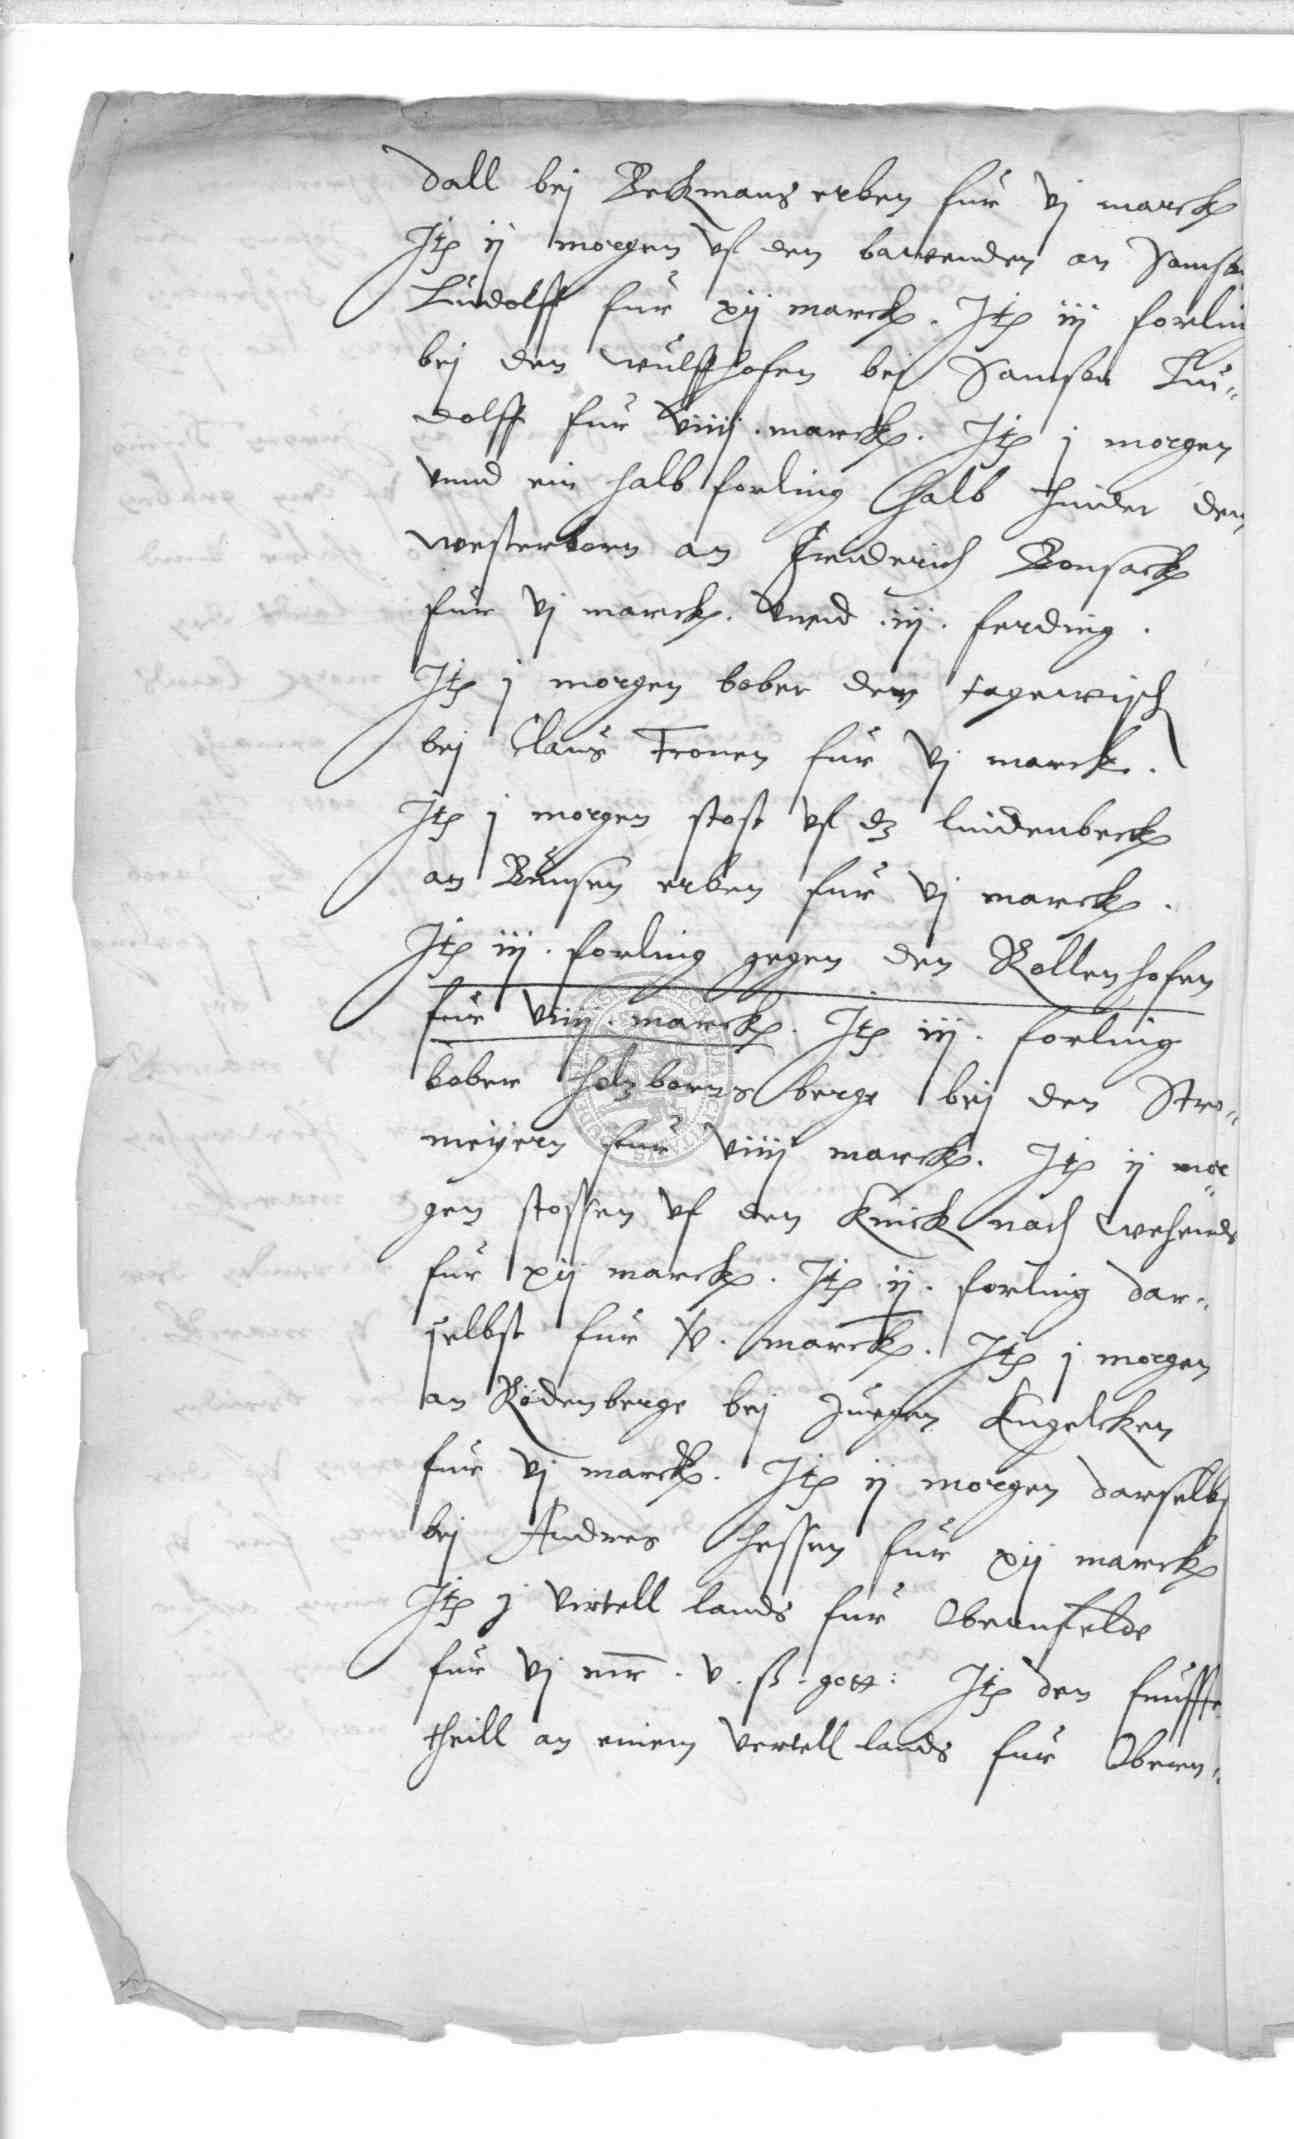 dall bej Beckmans erben fur vj marck
Itē ij morgen vf den barwenden an Samson
Ludolff fur xij marck. Itē iij forlin
bej den wulffhofen bej Samson Lu-
dolff fur viiij. marck. Itē j morgen
vnnd ein halb forling halb hinder den
westerborn an Friderich Bonsack
fur vj marck. vnnd .iij. ferding.
Itē j morgen bober dem tagewisch
bej Claus Fronen fur vj marck.
Itē j morgen stost vf dz lindenbeck
an Bunsen erben fur vj marck.
Itē iij. forling gegen den Rollenhofen
fur viiij. marck. Itē iij. forling
bober holzborns berge bej den Stro-
meyern fur viiij marck. Itē ij mor
gen stossen vf den Knick nach wehends
fur xij marck. Itē ij. forling dar-
selbst fur v. marck. Itē j morgen
an Rodenberge bej Jurgen Kugelcken
fur vj marck. Itē ij morgen darselbs
bej Andres Hessen fur xij marck
Itē j virtell lands fur Obernfelde
fur vj mr. v. ß. gott: Itē den funffte
theill an einem vertell lands fur Obern-